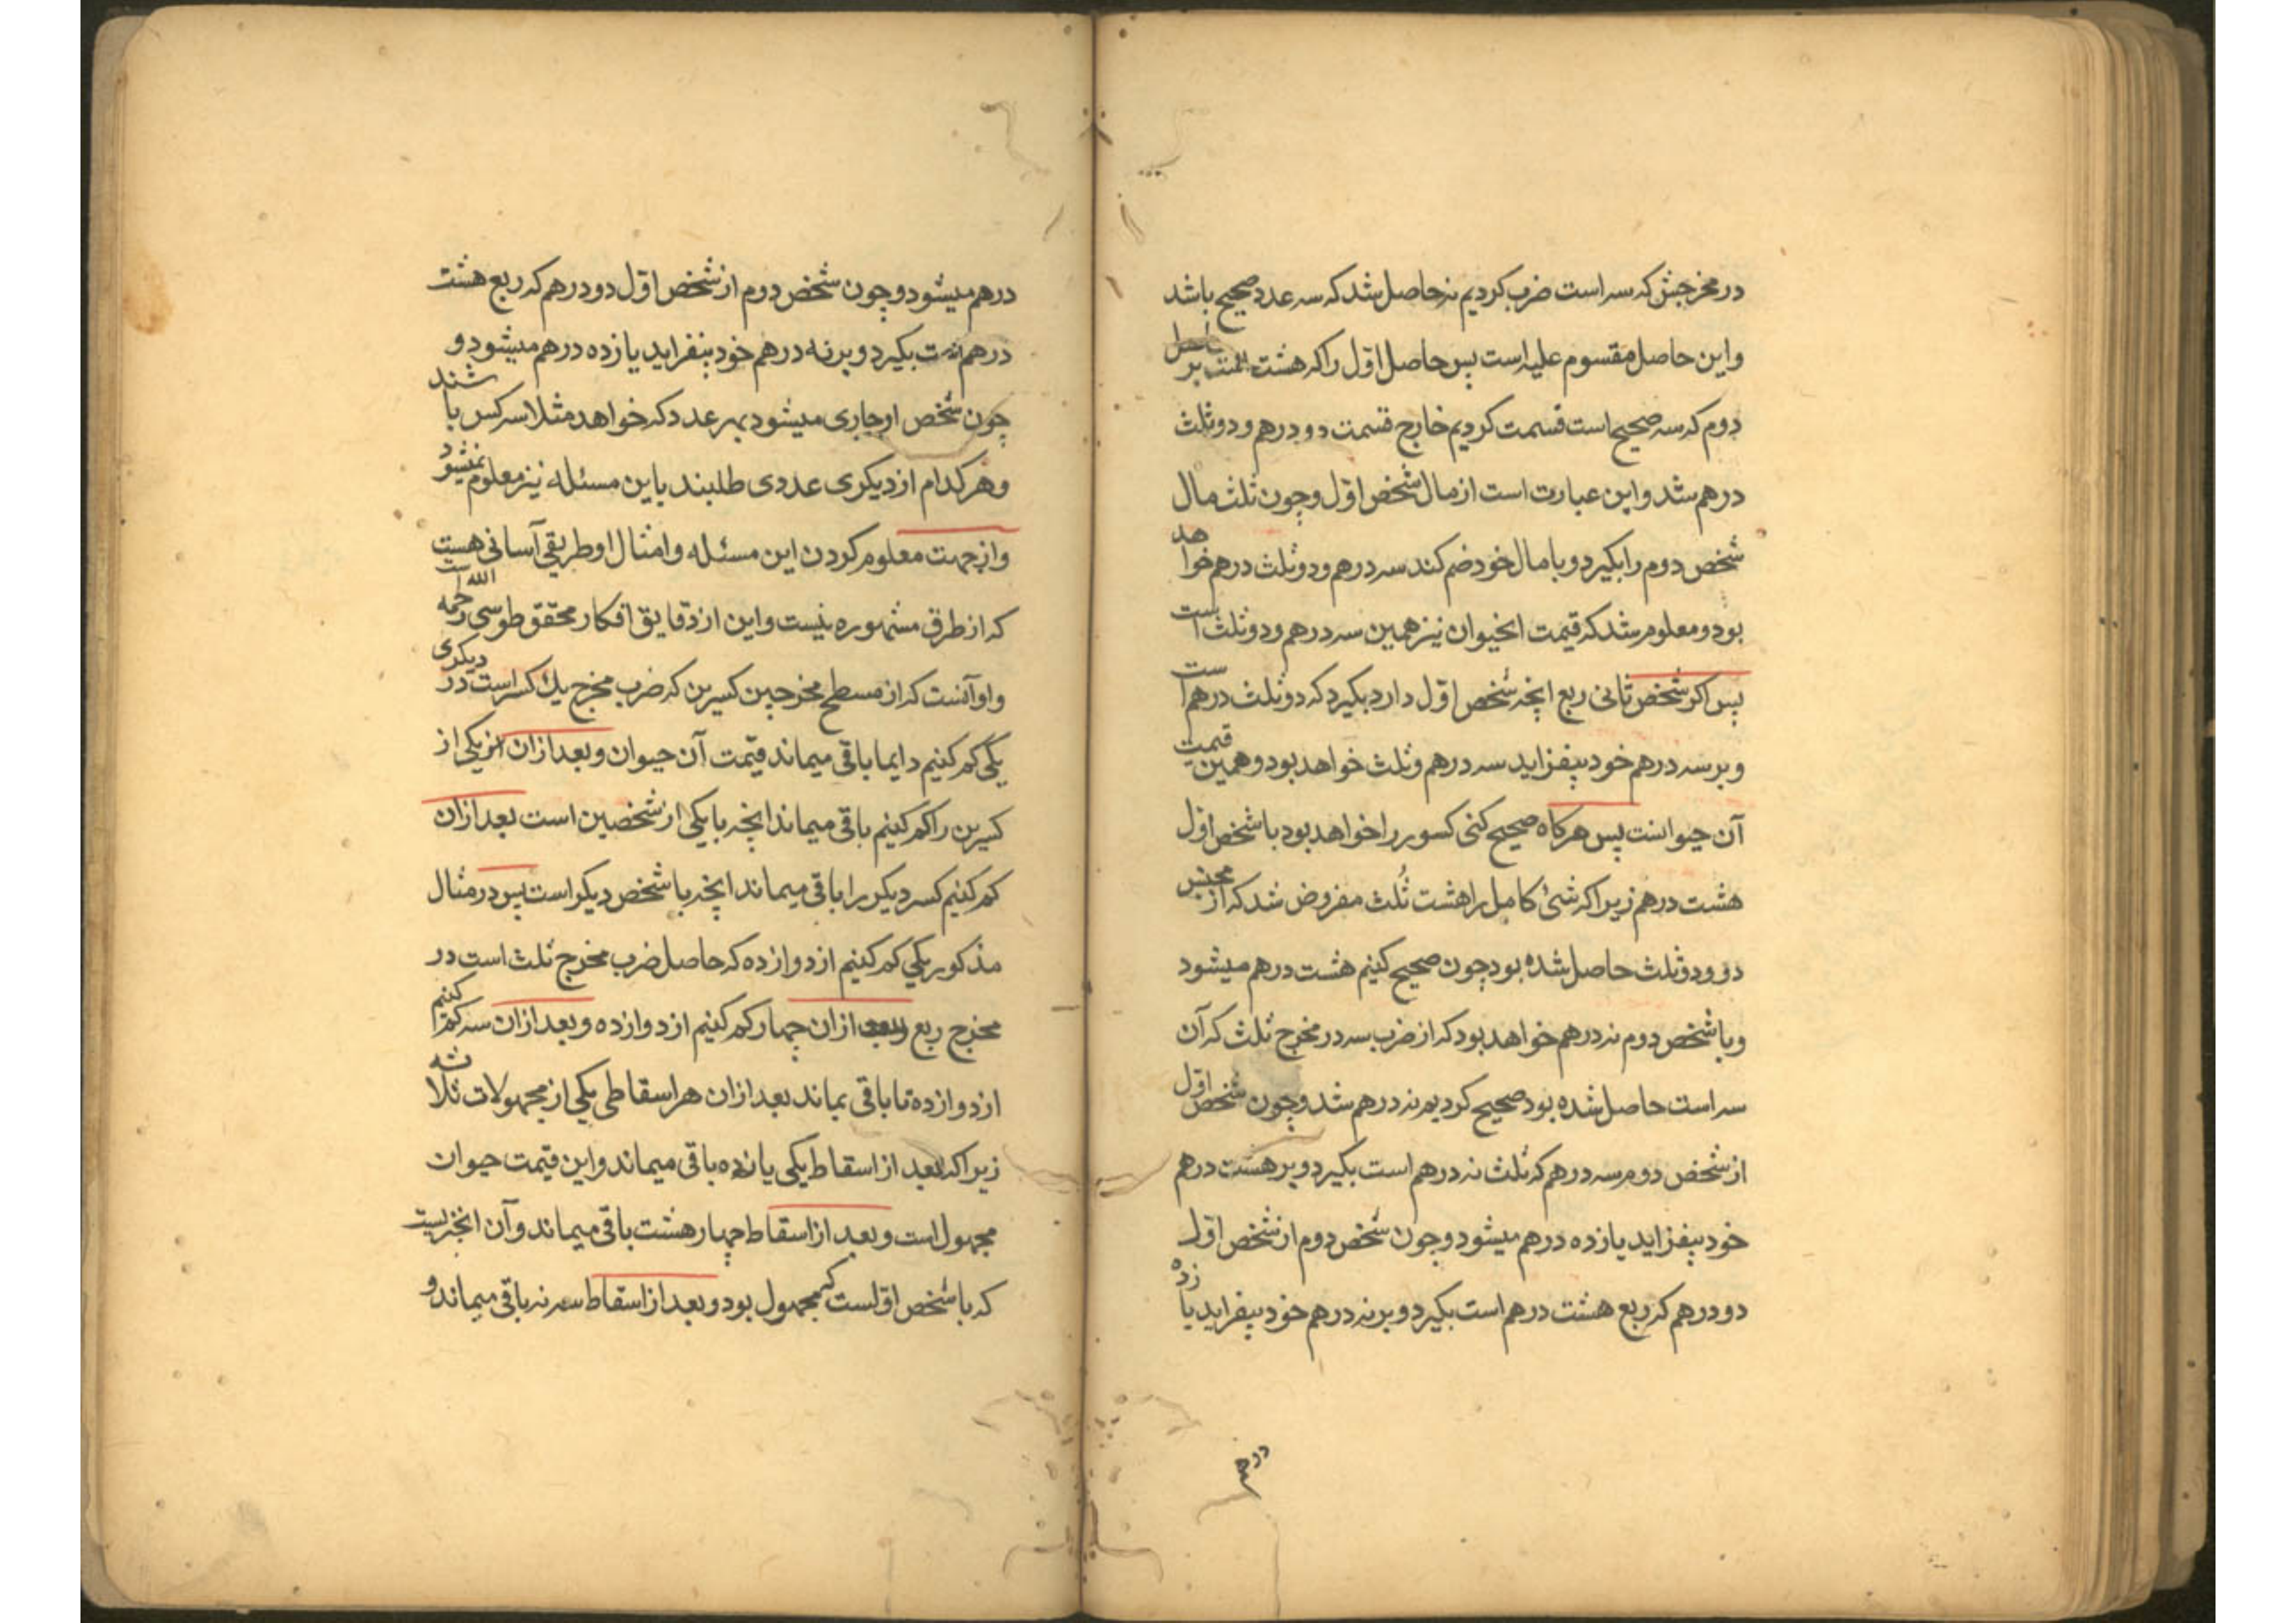 در مخرجش که سه است ضرب کردیم نه حاصل شد که سه عدد صحیح باشد
واین حاصل مقسوم علیه است پس حاصل اول را که هشت ثلث بر حاصل
دوم که سه صحیح است قسمت کردیم خارج قسمت دو درهم و دو ثلث
درهم شد و این عبارت است از مال شخص اول و چون ثلث مال
شخص دوم را بکیرد و با مال خود ضم کند سه درهم و دو ثلث درهم خواهد
بود و معلوم شد که قیمت انحیوان نیز همین سه درهم و دو ثلث است
پس اکر شخص ثانی ربع انچه شخص اول دارد بکیرد که دو ثلث درهم است
و بر سه درهم خود بیفزاید سه درهم و ثلث خواهد بود و همین قیمت
آن حیوانست پس هرکاه صحیح کنی کسور را خواهد بود با شخص اول
هشت درهم زیرا که شئ کامل را هشت ثلث مفروض شد که از مجنس
دو و دو ثلث حاصل شده بود چون صحیح کنیم هشت درهم میشود
و با شخص دوم نه درهم خواهد بود که از ضرب سه در مخرج ثلث که آن
سه است حاصل شده بود صحیح کردیم نه درهم شد و چون شخص اول
از شخص دوم سه درهم که ثلث نه درهم است بکیرد و بر هشت درهم
خود بیفزاید یازده درهم میشود و چون شخص دوم از شخص اول
دو درهم که ربع هشت درهم است بکیرد و بر نه درهم خود بیفزاید یازده
درهم
درهم میشود و چون شخص دوم از شخص اول دو درهم که ربع هشت
درهم است بکیرد و بر نه درهم خود بیفزاید یازده درهم میشود و
چون شخص او جاری میشود بهر عدد که خواهد مثلا سه کس باشند
و هر کدام از دیکری عددی طلبند باین مسئله نیز معلوم نمیشود
و از جهت معلوم کردن این مسئله و امثال او طریقی آسانی هست
که از طرق مشهوره نیست و این از دقایق افکار محقق طوسی رحمه الله است
و او آنست که از مسطح مخرجین کسرین که ضرب مخرج یک کسر است در دیکری
یکی کم کنیم دایما باقی میماند قیمت آن حیوان و بعد از ان از یکی از
کسرین را کم کنیم باقی میماند انچه با یکی از شخصین است بعد ازان
کم کنیم کسر دیکر را باقی میماند انچه با شخص دیکر است پس در مثال
مذکور یکی کم کنیم از دوازده که حاصل ضرب مخرج ثلث است در
مخرج ربع و بعد ازان چهار کم کنیم از دوازده و بعد ازان سه کم کنیم
از دوازده تا باقی بماند بعد ازان هر اسقاطی یکی از مجهولات ثلاثه
زیرا که بعد از اسقاط یکی یازده باقی میماند و این قیمت حیوان
مجهول است و بعد از اسقاط چهار هشت باقی میماند و آن انچیزیست
که با شخص اولست که مجهول بود و بعد از اسقاط سه نه باقی میماند و